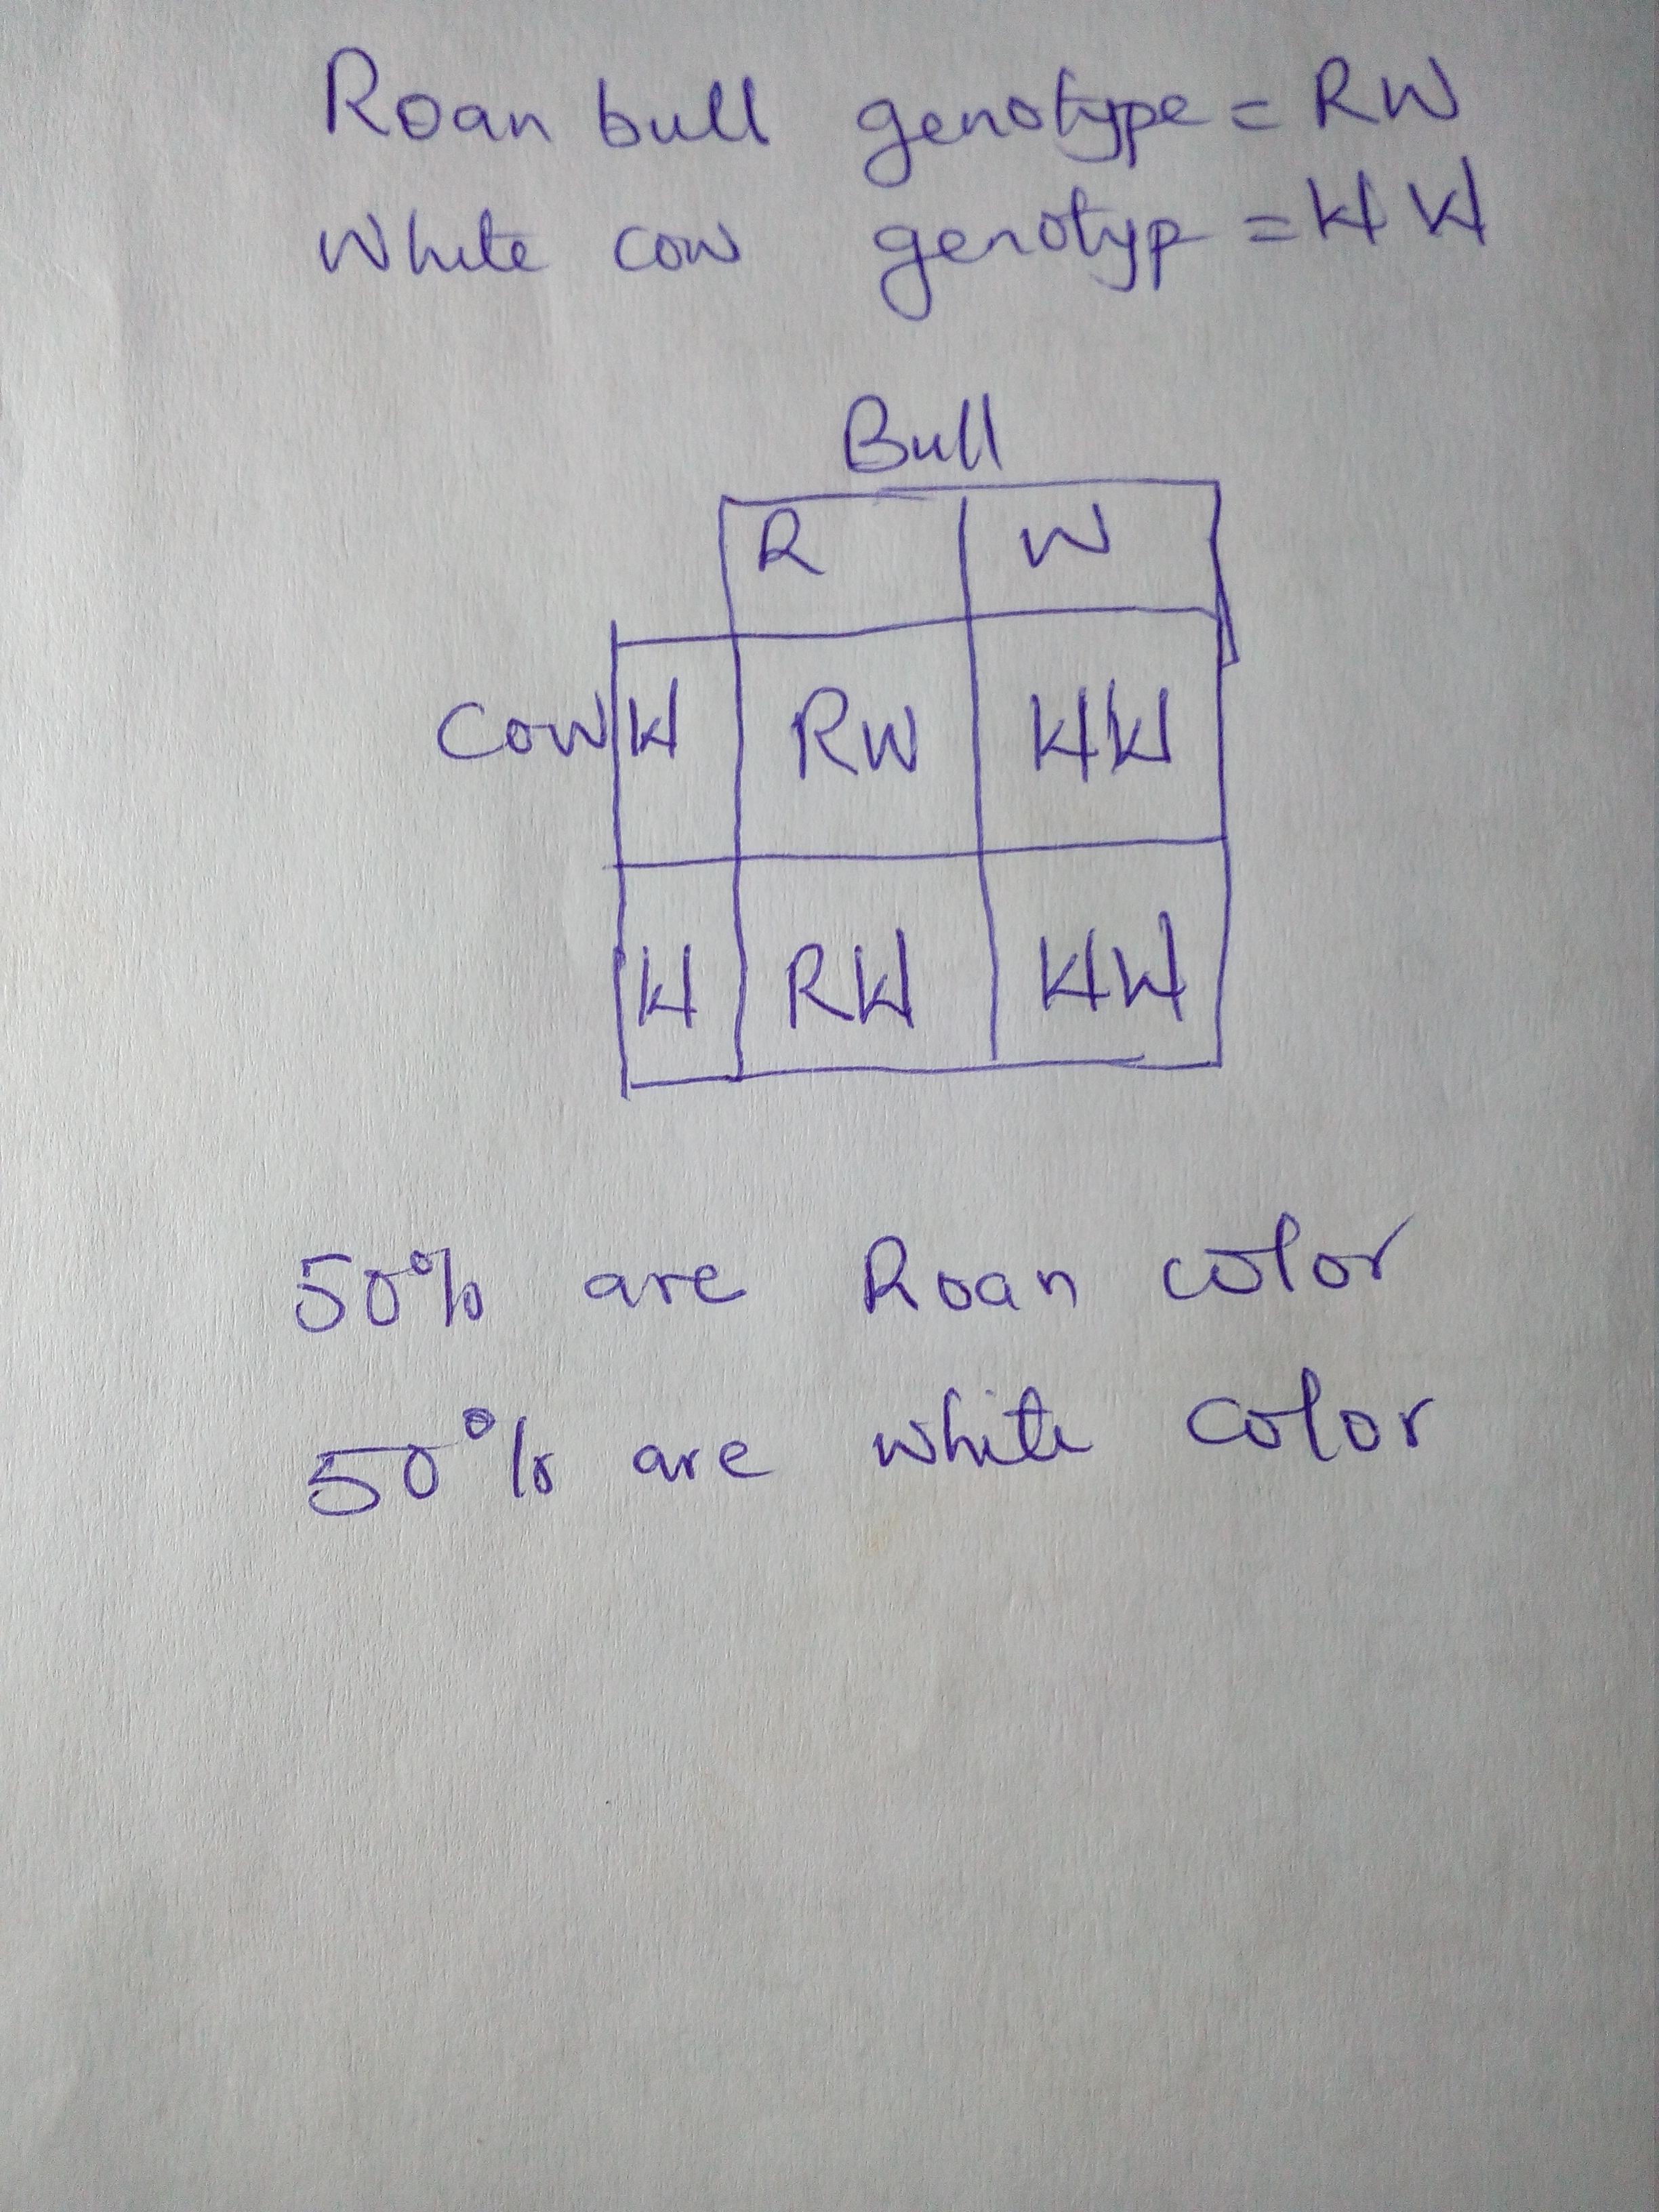 Roan bull genotype = RW
White cow genotyp = WW
Bull
R W
Cow W RW WW
W RW WW
50% are Roan color
50% are white color